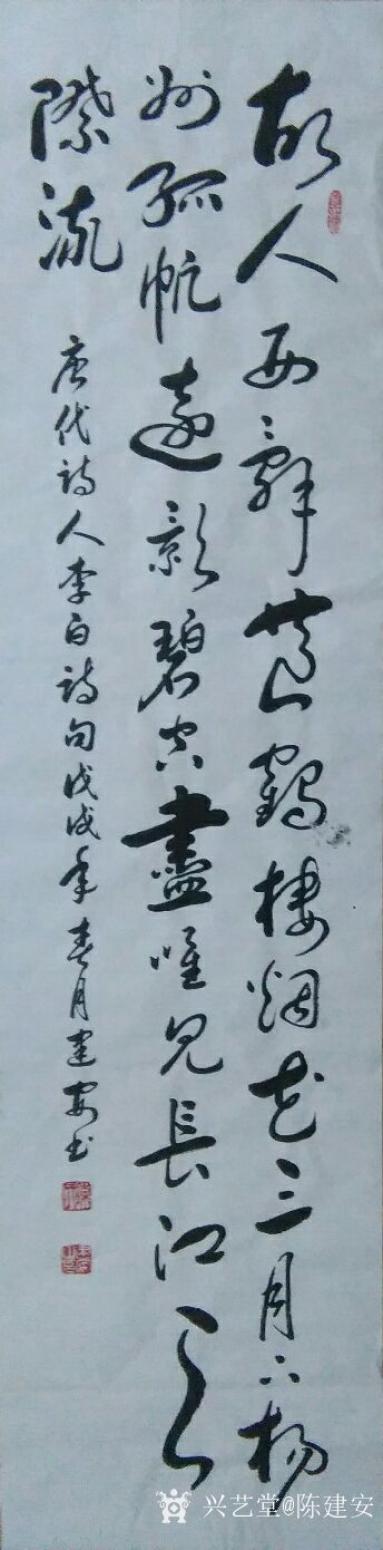 故人西辞黄鹤楼烟花三月下杨
州孤帆远影碧空盡唯见長江天
際流
唐代诗人李白诗句戊戌年春月建安书
兴艺堂@陈建安